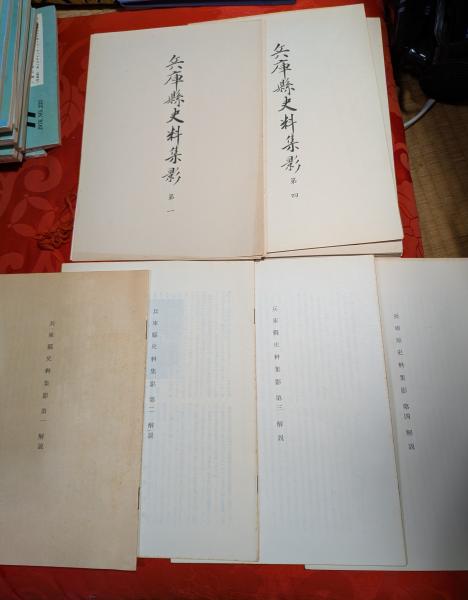 兵庫縣史料集影
第一
兵庫縣史料集影
第四
兵庫縣史料集影 第一 解説
兵庫縣史料集影 第二 解説
兵庫縣史料集影 第三 解説
兵庫縣史料集影 第四 解説